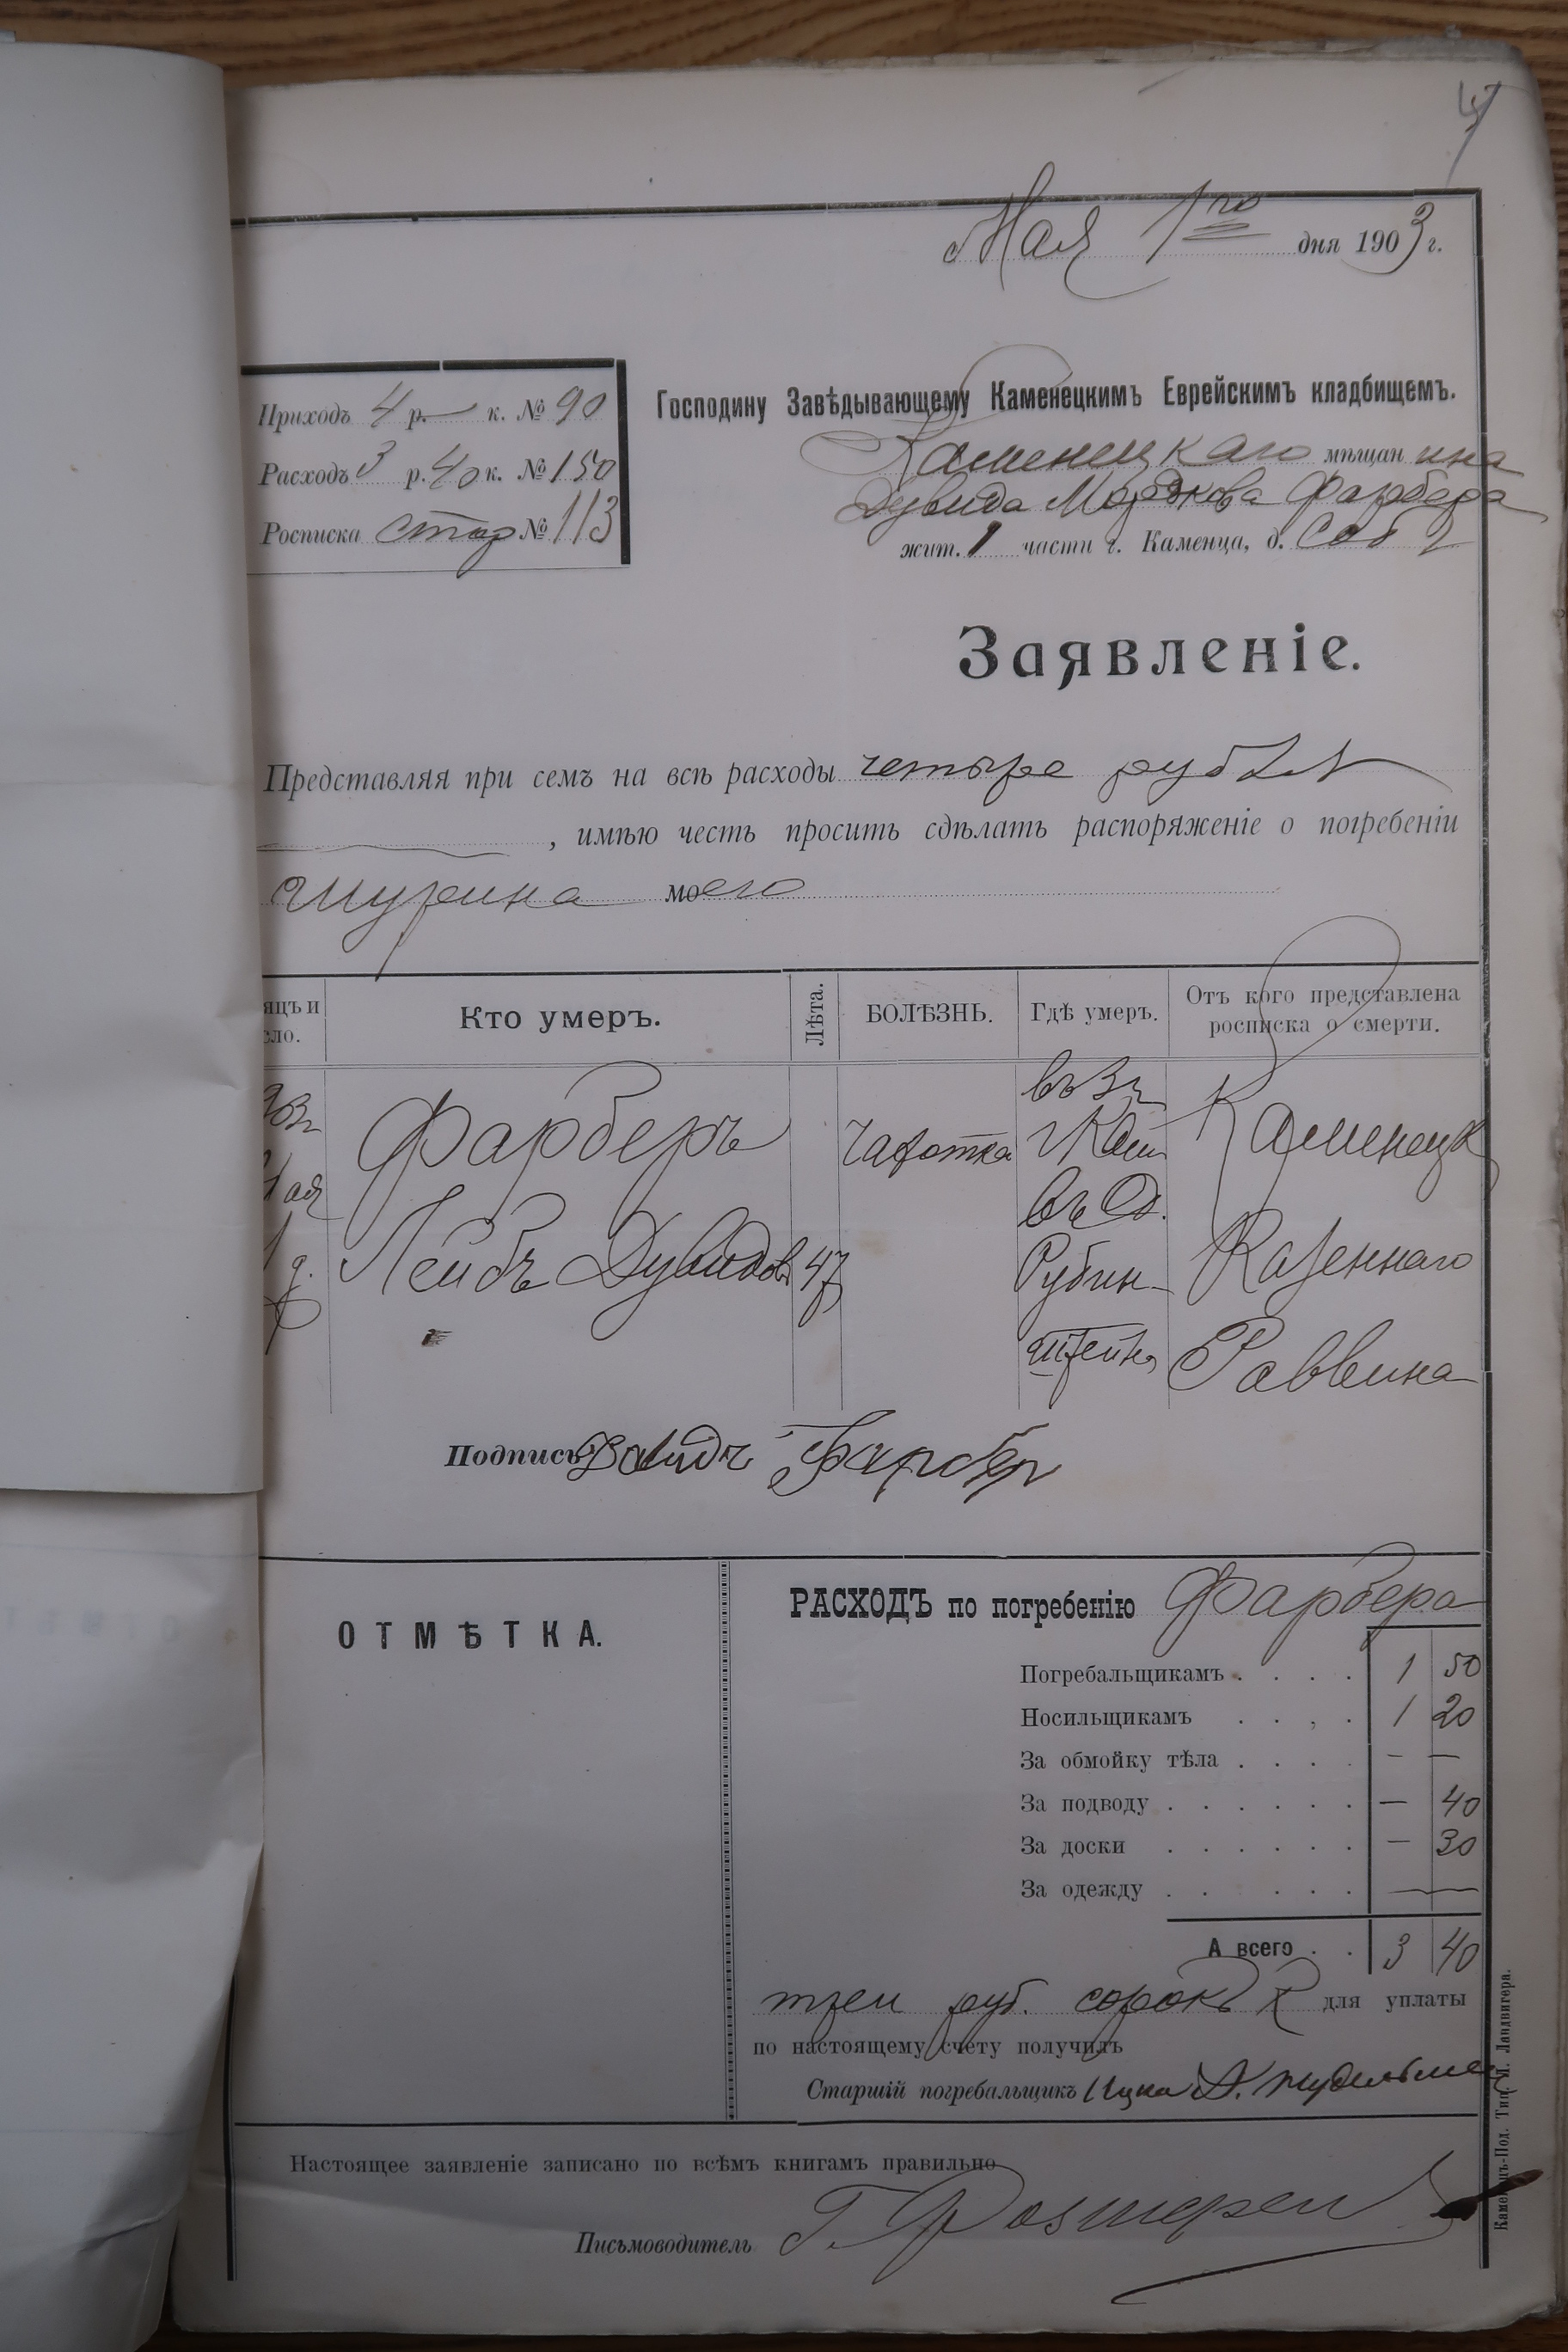 Мая 1го дня 1903 г.
Приходъ 4 р. — к. № 90
Расходъ 3 р. 40 к. № 150
Росписка стар № 113
Господину Завѣдывающему Каменецкимъ Еврейскимъ кладбищемъ.
Каменецкаго мѣщанина
Дувида Мордкова Фарбера
жит. 1 части г. Каменца, д. Соб
Заявленіе.
Представляя при семъ на всѣ расходы четыре рубля
, имѣю честь просить сдѣлать распоряженіе о погребеніи
шурина моего
яцъ и
сло.
Кто умеръ.
Лѣта.
БОЛѢЗНЬ.
Гдѣ умеръ.
Отъ кого представлена
росписка о смерти.
903г
Мая
1 д.
Фарберъ
Лейбъ Дувидов
47
Чахотка
въ 3ч
г Кам
въ д.
Рубин-
штейна
Каменецк
Казеннаго
Раввина
Подпись: Давидъ Фарбер
ОТМѢТКА.
РАСХОДЪ по погребенію Фарбера
Погребальщикамъ . . . . 1 50
Носильщикамъ . . , . 1 20
За обмойку тѣла . . . . — —
За подводу . . . . . . — 40
За доски . . . . . . — 30
За одежду . . . . . . —
А всего . . 3 40
три руб. сорокъ к для уплаты
по настоящему счету получилъ
Старшій погребальщикъ Ицка
Настоящее заявленіе записано по всѣмъ книгамъ правильно
Письмоводитель Г.
Каменецъ-Под. Тип. Я. Ландвигера.